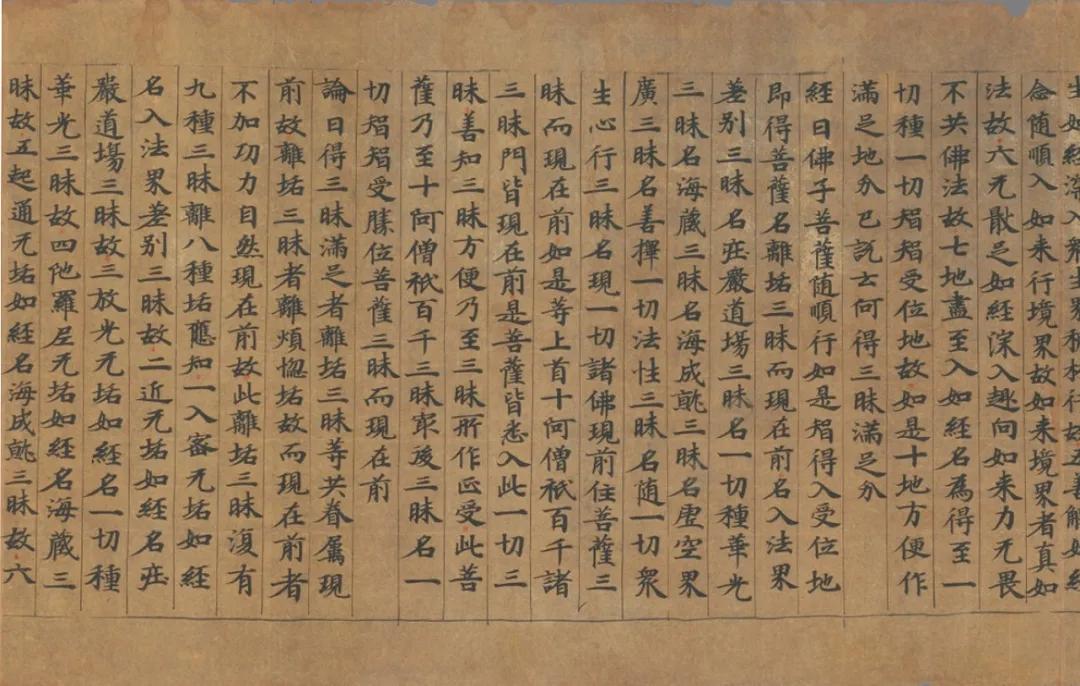 生如經深入衆生界稠林行故五善解如經
念随順入如来行境界故如来境界者真如
法故六无散足如經深入趣向如来力无畏
不共佛法故七地盡至入如經名為得至一
切種一切智智受位地故如是十地方便作
滿足地分已說云何得三昧滿足分
經曰佛子菩薩随順行如是智得入受位地
即得菩薩名離垢三昧而現在前名入法界
差别三昧名莊嚴道場三昧名一切種華光
三昧名海藏三昧名海成就三昧名虛空界
廣三昧名善擇一切法性三昧名随一切衆
生心行三昧名現一切諸佛現前住菩薩三
昧而現在前如是等上首十阿僧祇百千諸
三昧門皆現在前是菩薩皆悉入此一切三
昧善知三昧方便乃至三昧所作正受此菩
薩乃至十阿僧祇百千三昧最後三昧名一
切智智受勝位菩薩三昧而現在前
論曰得三昧滿足者離垢三昧等共眷屬現
前故離垢三昧者離煩惱垢故而現在前者
不加功力自然現在前故此離垢三昧復有
九種三昧離八種垢應知一入密无垢如經
名入法界差别三昧故二近无垢如經名莊
嚴道場三昧故三放光无垢如經名一切種
華光三昧故四陀羅尼无垢如經名海藏三
昧故五起通无垢如經名海成就三昧故六